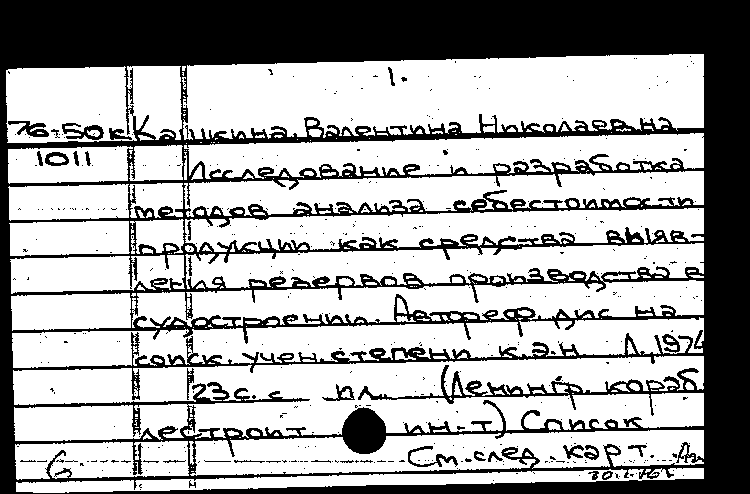 1.
76-50к Кашкина, Валентина Николаевна
1011
Исследование и разработка
методов анализа себестоимости
продукции как средства выяв-
ления резервов производства в
судостроении. Автореф. дис на
соиск. учен. степени к.э.н Л., 1974
23 с. с ил. (Ленингр. кораб
лестроит ин-т) Список
См. след. карт.
6